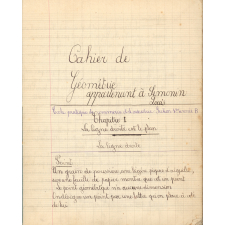 Cahier de
Géométrie
appartenant à Simonin
Louis
Ecole pratique de commerce et d'industrie
Chapitre 1
La ligne droite et le plan
La ligne droite
Point
Un grain de poussière, une légère piqûre d'aiguille,
sur une feuille de papier montre que et un point
Le point géométrique n'a aucune dimension
L'indique un point par une lettre qu'on place à côté
de lui